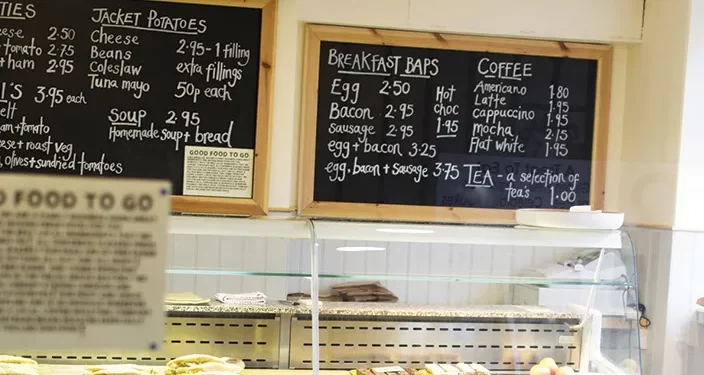 TIES
ese 2.50
tomato 2.75
ham 2.95
I'S 3.95 each
elt
am+tomato
ese + roast veg
, olives+sundried tomatoes
JACKET POTATOES
Cheese 2.95-1 filling
Beans
Coleslaw extra fillings
Tuna mayo 50p each
SOUP 2.95
Homemade soup + bread
GOOD FOOD TO GO
BREAKFAST BAPS
Egg 2.50
Bacon 2.95
sausage 2.95
egg+bacon 3.25
egg, bacon + sausage 3.75
Hot
choc
1.95
COFFEE
Americano 1.80
Latte 1.95
cappuccino 1.95
mocha 2.15
Flat white 1.95
TEA - a selection of
tea's 1.00
D FOOD TO GO